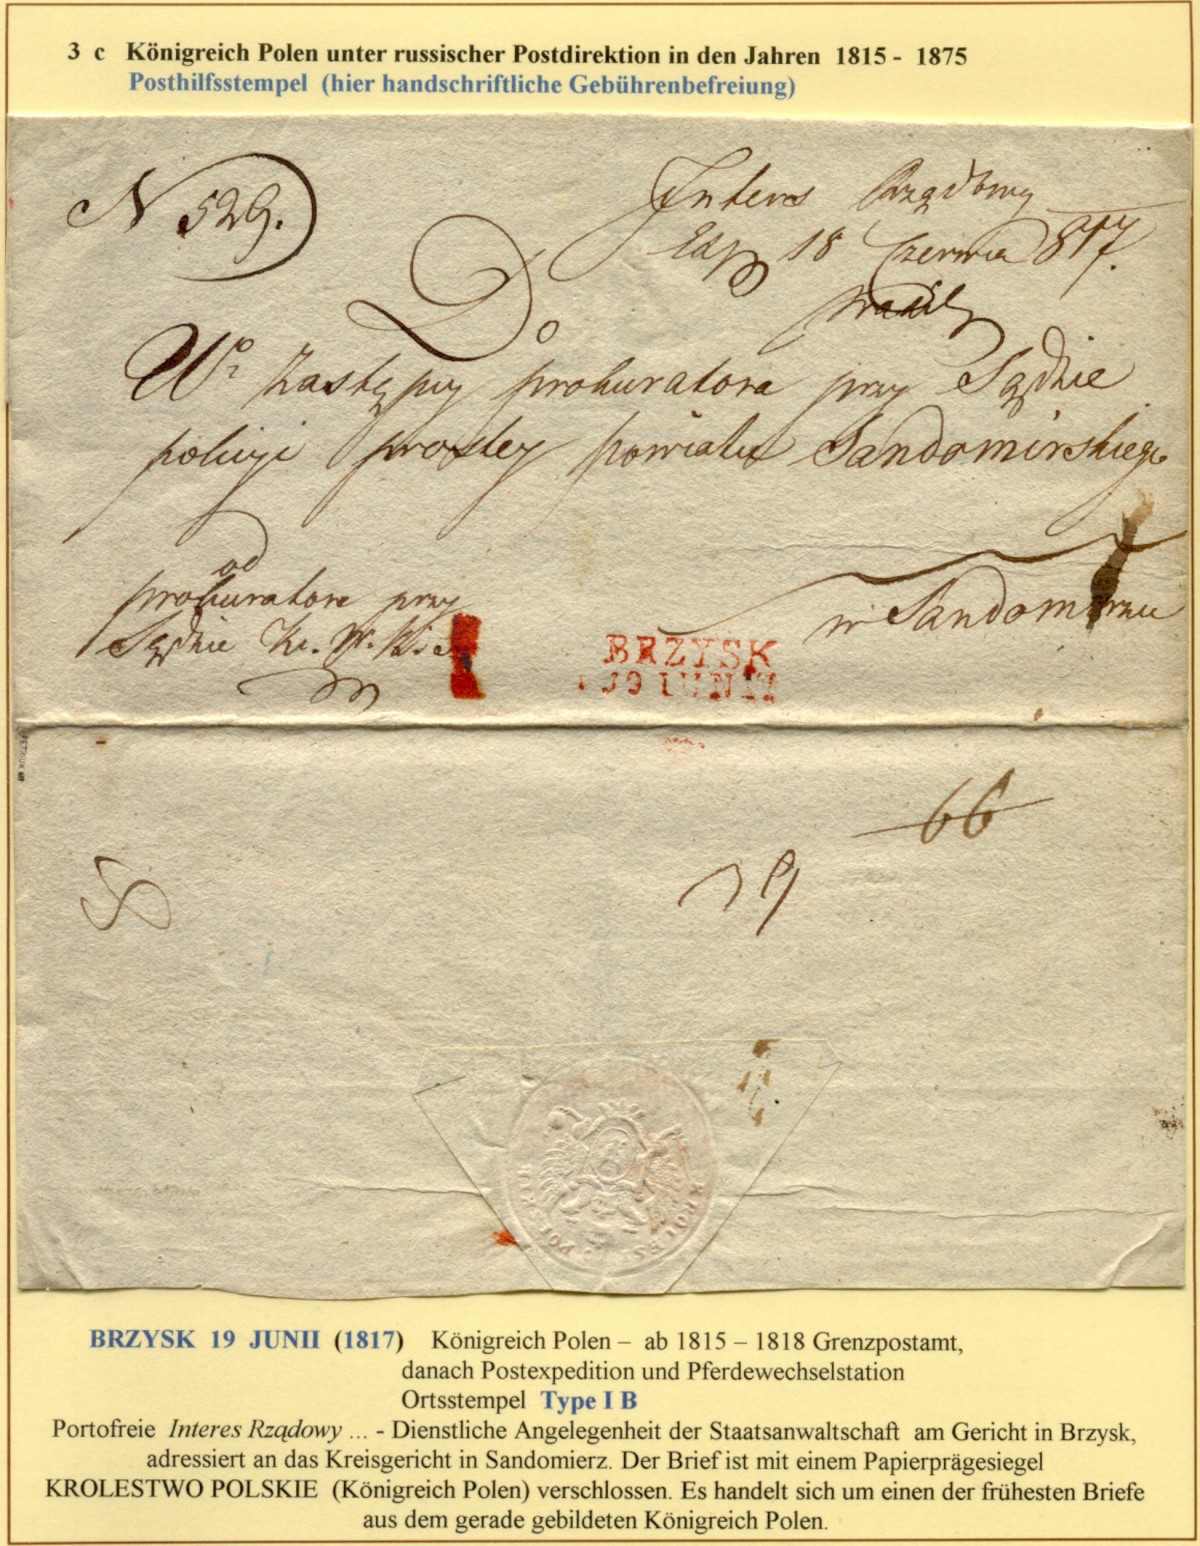 3 c Königreich Polen unter russischer Postdirektion in den Jahren 1815 - 1875
Posthilfsstempel (hier handschriftliche Gebührenbefreiung)
N 529.
Interes Rządowy
Exp 18 Czerwca 817.
Do
Wo Zastępcy prokuratora przy Sądzie
policyi prostey powiatu Sandomirskiego
od
prokuratora przy
Sądzie
w Sandomirzu
BRZYSK
19 IUNII
66
KROLEST POL
BRZYSK 19 JUNII (1817) Königreich Polen – ab 1815 – 1818 Grenzpostamt,
danach Postexpedition und Pferdewechselstation
Ortsstempel Type I B
Portofreie Interes Rządowy ... - Dienstliche Angelegenheit der Staatsanwaltschaft am Gericht in Brzysk,
adressiert an das Kreisgericht in Sandomierz. Der Brief ist mit einem Papierprägesiegel
KROLESTWO POLSKIE (Königreich Polen) verschlossen. Es handelt sich um einen der frühesten Briefe
aus dem gerade gebildeten Königreich Polen.